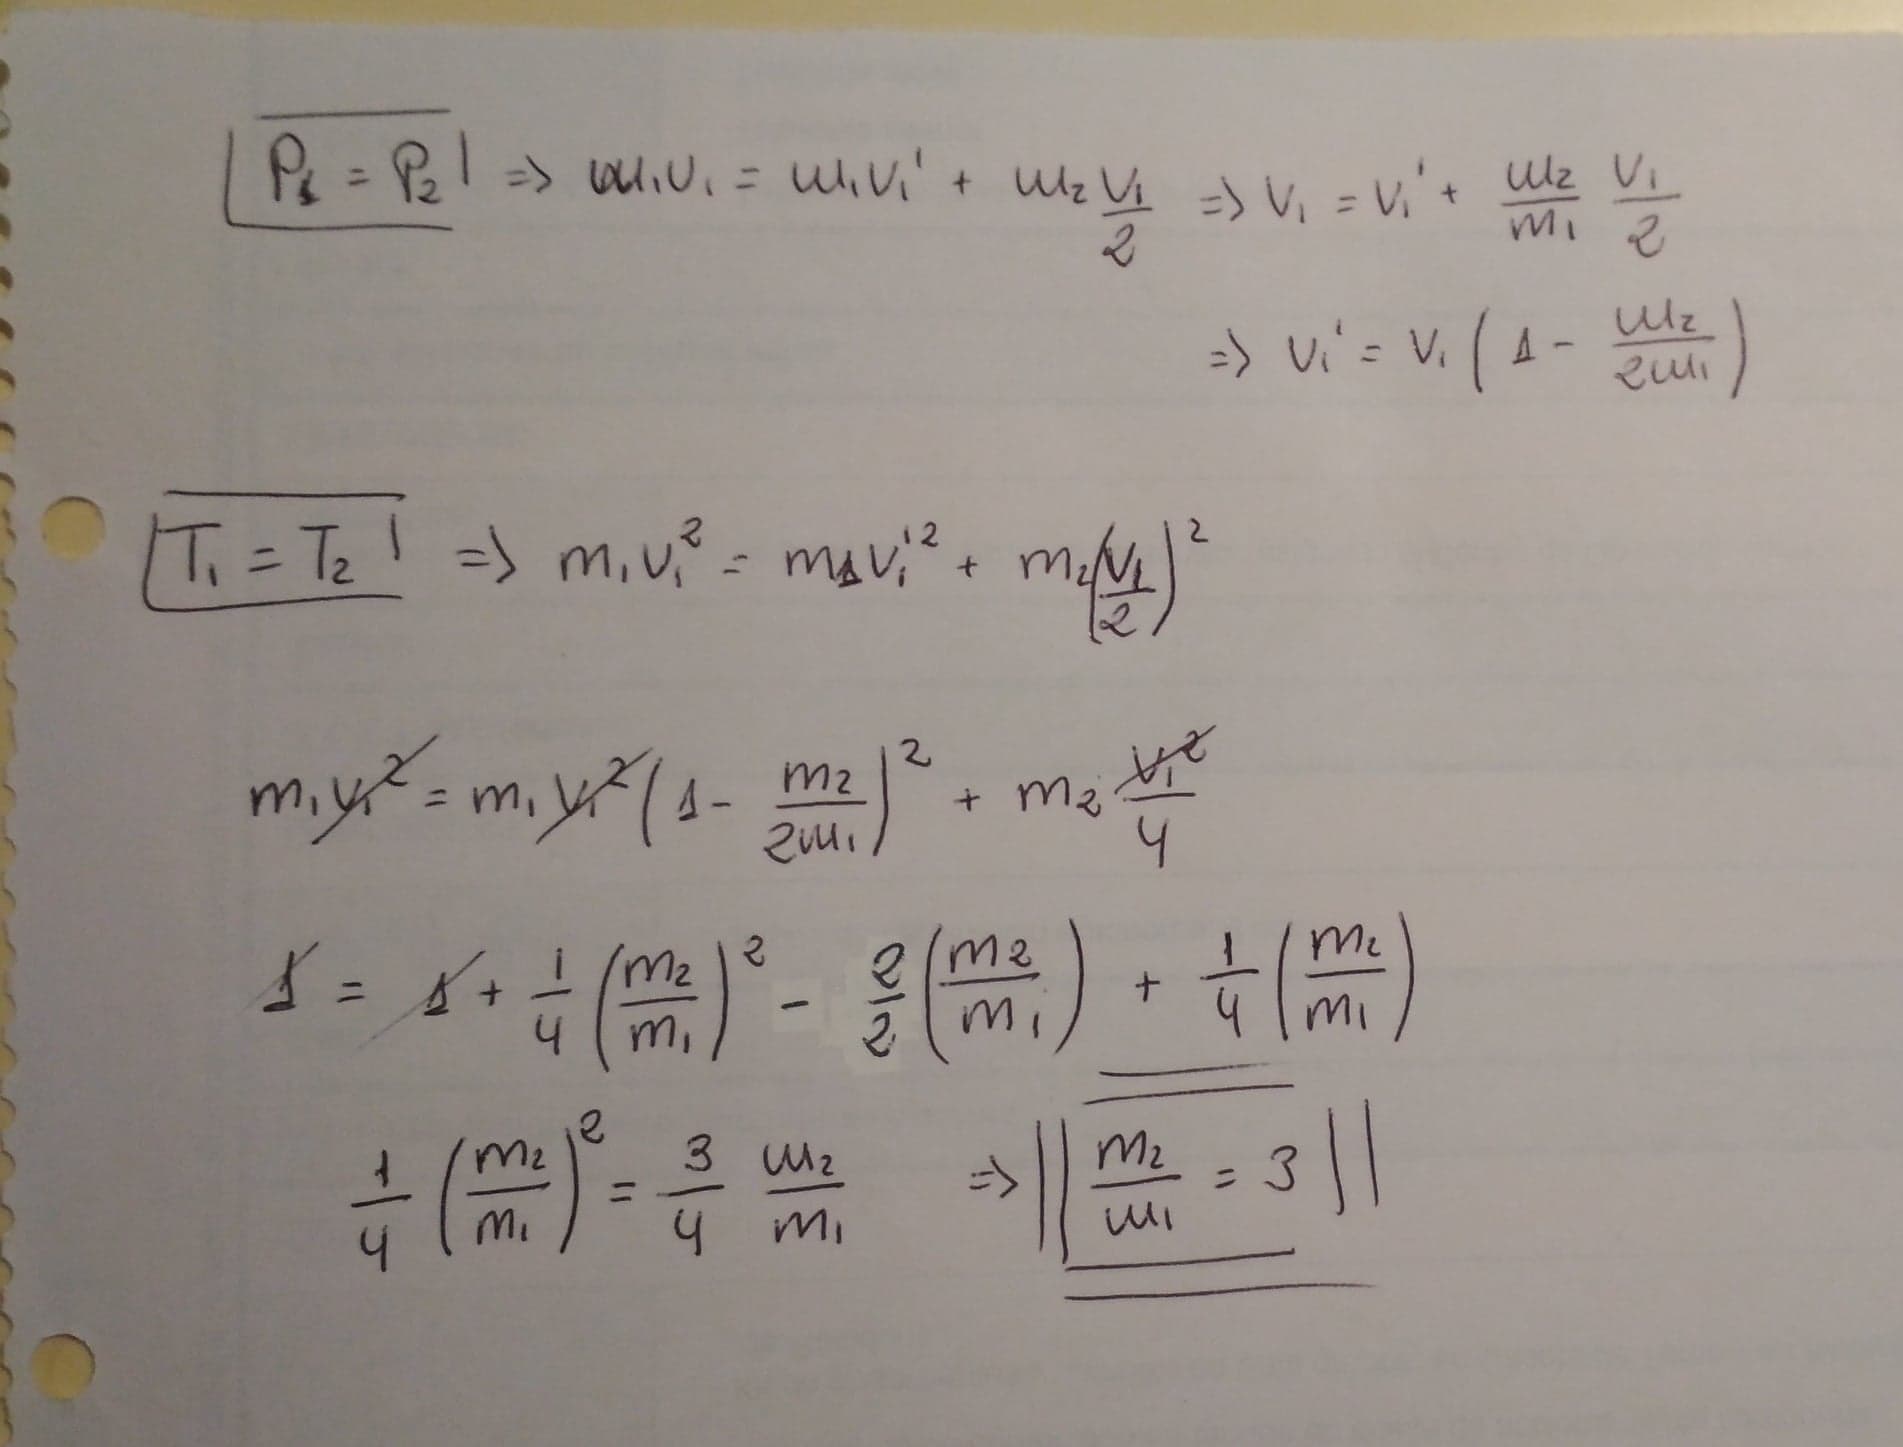 P₁ = P₂ => m₁v₁ = m₁v₁' + m₂ v₁/2 => v₁ = v₁' + m₂/m₁ v₁/2
=> v₁' = v₁ (1 - m₂/2m₁)
T₁ = T₂ => m₁v₁² = m₁v₁'² + m₂(v₁/2)²
m₁v₁² = m₁v₁² (1 - m₂/2m₁)² + m₂ v₁²/4
1 = 1 + 1/4 (m₂/m₁)² - 2/2 (m₂/m₁) + 1/4 (m₂/m₁)
1/4 (m₂/m₁)² = 3/4 m₂/m₁ => m₂/m₁ = 3